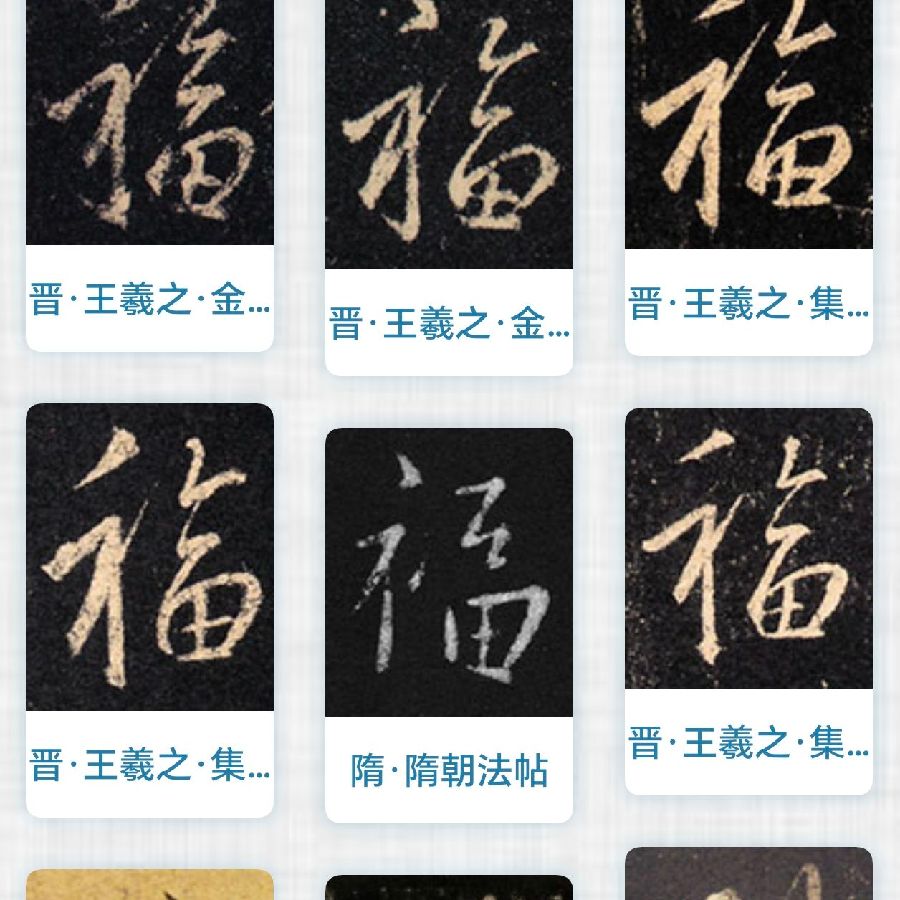 福 福 福
晋·王羲之·金... 晋·王羲之·金... 晋·王羲之·集...
福 福 福
晋·王羲之·集... 隋·隋朝法帖 晋·王羲之·集...